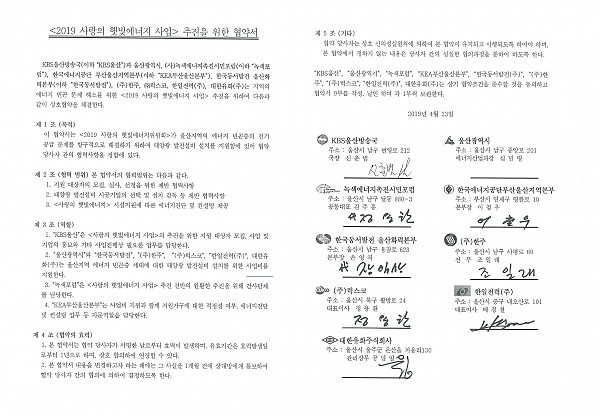 <2019 사랑의 햇빛에너지 사업> 추진을 위한 협약서
KBS울산방송국(이하 "KBS울산")과 울산광역시, (사)녹색에너지촉진시민포럼(이하 "녹색포
럼"), 한국에너지공단 부산울산지역본부(이하 "KEA부산울산본부"), 한국동서발전 울산화력
본부(이하 "한국동서발전"), (주)한주, ㈜럭스코, 한일전력(주), 대한유화(주)는 지역의
에너지 빈곤 문제 해소를 위한 <2019 사랑의 햇빛에너지 사업> 추진을 위하여 다음과
같이 상호협약을 체결한다.
제 1 조 (목적)
이 협약서는 <2019 사랑의 햇빛에너지위원회>가 울산지역의 에너지 빈곤층의 전기
공급 문제를 항구적으로 해결하기 위하여 태양광 발전설비 설치를 지원함에 있어 협약
당사자 간의 협약사항을 정함에 있다.
제 2 조 (협력 범위) 본 협약서의 협력범위는 다음과 같다.
1. 지원 대상자의 모집, 실사, 선정을 위한 제반 협약사항
2. 태양광 발전설비 시공기업의 선택 및 설치 감독 등 제반 협약사항
3. <사랑의 햇빛에너지> 시설지원에 따른 에너지진단 및 컨설팅 제공
제 3 조 (역할)
1. "KBS울산"은 <사랑의 햇빛에너지 사업> 추진을 위한 지원 대상자 모집, 사업 및
기업의 홍보와 기타 사업진행상 필요한 업무를 담당한다.
2. "울산광역시"와 "한국동서발전", "(주)한주", "(주)럭스코", "한일전력(주)", 대한유
화(주)는 울산지역 에너지 빈곤층 세대에 대한 태양광 발전설비 설치를 위한 사업비를
지원한다.
3. "녹색포럼"은 <사랑의 햇빛에너지 사업> 추진 전반의 원활한 추진을 위해 간사단체
를 담당한다.
4. "KEA부산울산본부"는 사업비 지원과 함께 지원가구에 대한 적정성 여부, 에너지진단
및 컨설팅 업무 등 자문역할을 담당한다.
제 4 조 (협약의 효력)
1. 본 협약서는 협약 당사자가 서명한 날로부터 효력이 발생하며, 유효기간은 효력발생일
로부터 1년으로 하며, 상호 합의하에 연장할 수 있다.
2. 본 협약서 내용을 변경하고자 하는 때에는 그 사실을 1개월 전에 상대방에게 통보하여
협약 당사자 간의 합의에 의하여 결정하도록 한다.
제 5 조 (기타)
협약 당사자는 상호 신의성실원칙에 의하여 본 협약이 유지되고 이행되도록 하여야 하며,
본 협약에서 정하지 않는 내용은 당사자 간의 성실한 협의과정을 통하여 하도록 한다.
"KBS울산", "울산광역시", "녹색포럼", "KEA부산울산본부", "한국동서발전", "(주)한
주", "(주)럭스코", "한일전력(주), 대한유화(주)는 상기 협약조건을 준수할 것을 동의하고
협약서 9부를 작성, 날인 하여 각 1부씩 보관한다.
2019년 4월 23일
KBS울산방송국
주소 : 울산시 남구 번영로 212
국장 신춘범
울산광역시
주소 : 울산시 남구 중앙로 201
에너지산업과장 심민령
녹색에너지촉진시민포럼
주소 : 울산시 남구 달동
공동대표 김주홍
한국에너지공단부산울산지역본부
주소 : 부산시 연제구
본부장 이걸우
한국동서발전 울산화력본부
주소 : 울산시 남구 용잠로 623
본부장
(주)한주
주소 : 울산시 남구 사평로 60
전무 조일래
조일래
(주)럭스코
주소 : 울산시 북구
대표이사 정용환
한일전력(주)
주소 : 울산시 중구
대표이사
대한유화주식회사
주소 : 울산시 울주군 온산읍